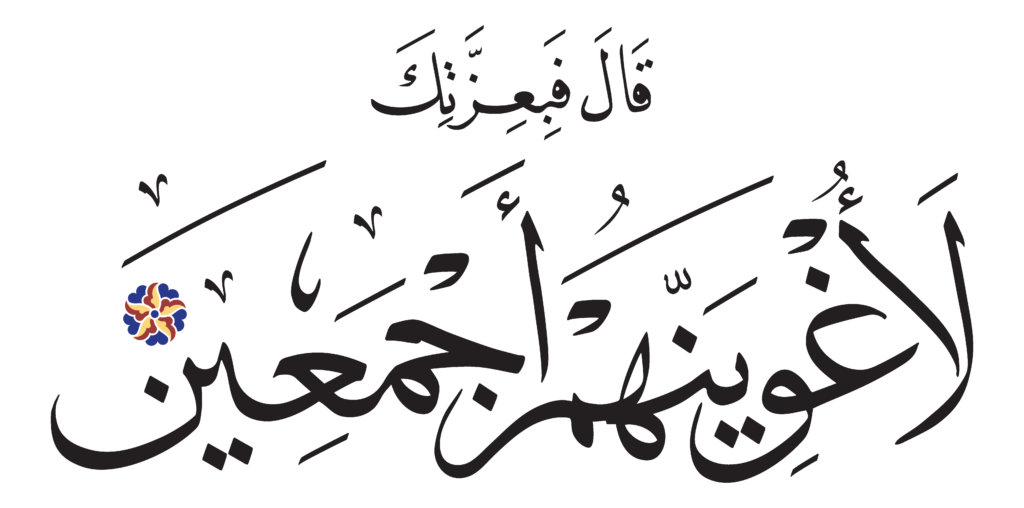 قَالَ فَبِعِزَّتِكَ
لَأُغْوِيَنَّهُمْ أَجْمَعِينَ